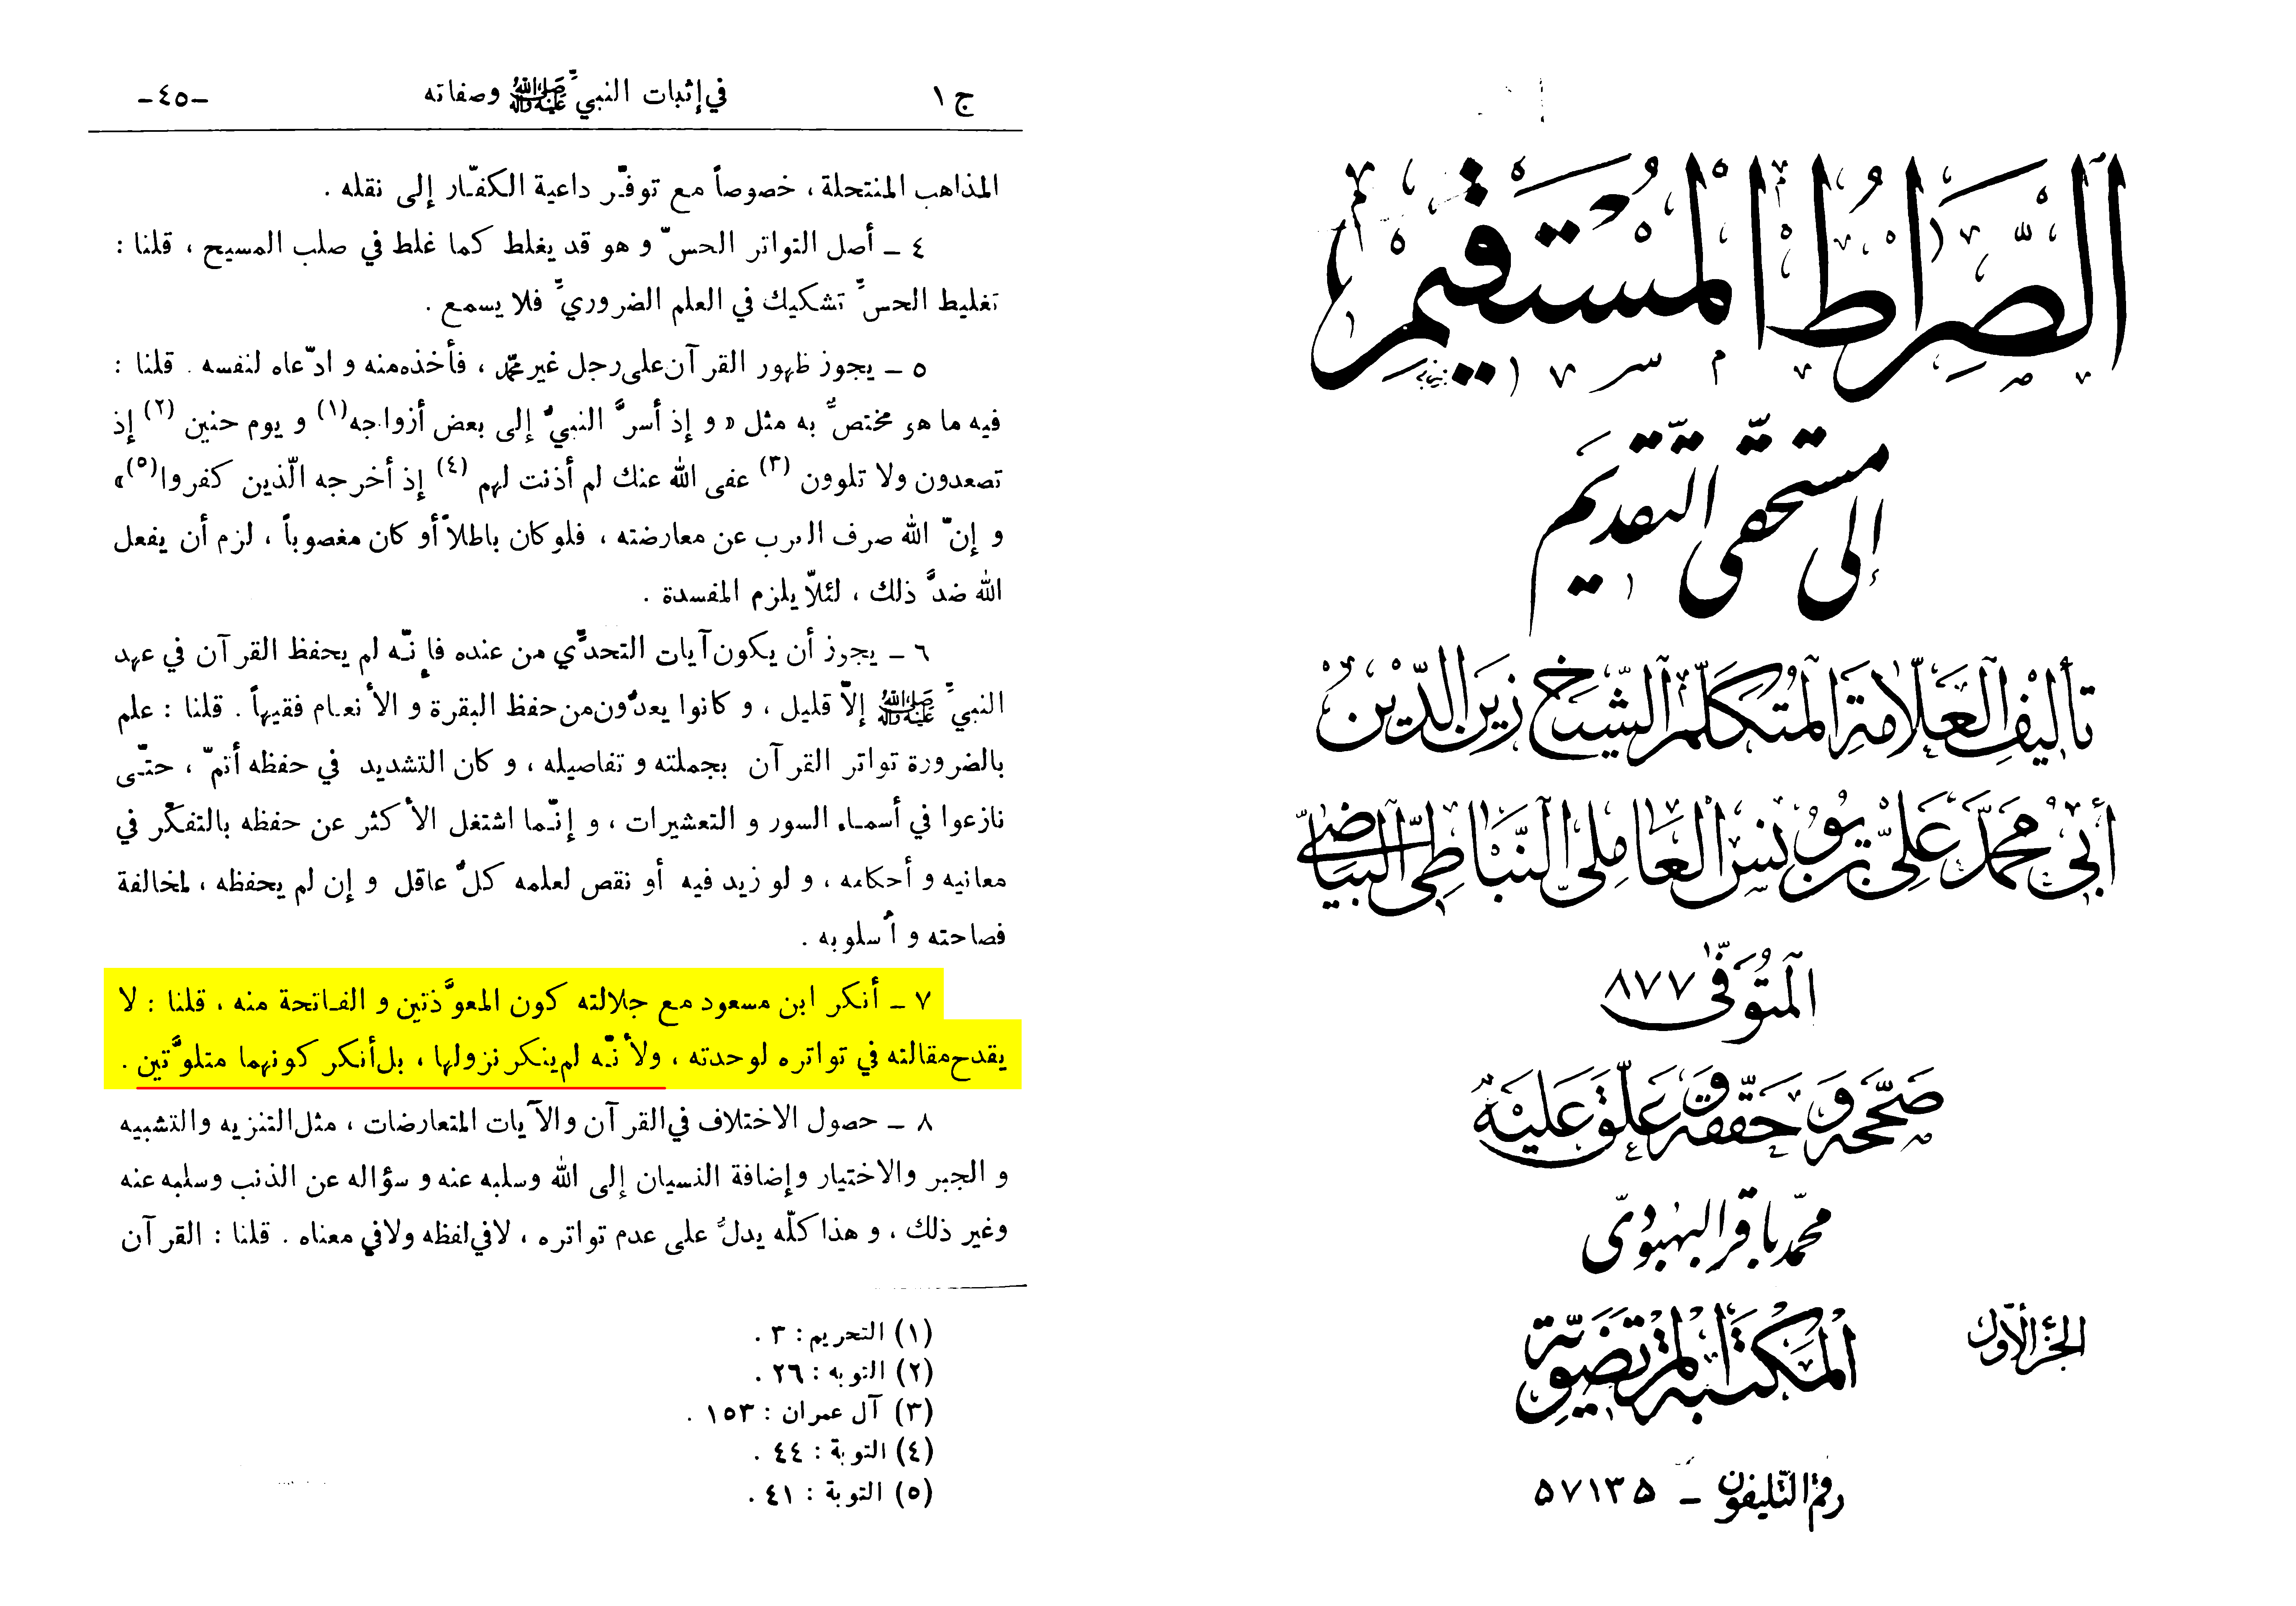 الصراط المستقيم
إلى مستحقي التقديم
تأليف العلامة المتكلم الشيخ زين الدين
أبي محمد علي بن يونس العاملي النباطي البياضي
المتوفى ٨٧٧
صححه وحققه وعلق عليه
محمد باقر البهبودي
الجزء الأول
المكتبة المرتضوية
رقم التليفون ـ ۵۷۱۳۵
ج ١ في إثبات النبي ﷺ وصفاته -٤٥-
المذاهب المنتحلة ، خصوصاً مع توفّر داعية الكفّار إلى نقله .
٤ ـ أصل التواتر الحسّ و هو قد يغلط كما غلط في صلب المسيح ، قلنا :
تغليط الحسِّ تشكيك في العلم الضروريِّ فلا يسمع .
٥ ـ يجوز ظهور القرآن على رجل غير محمّد ، فأخذه منه و ادّعاه لنفسه . قلنا :
فيه ما هو مختصٌّ به مثل « و إذ أسرَّ النبيُّ إلى بعض أزواجه (١) و يوم حنين (٢) إذ
تصعدون ولا تلوون (٣) عفى الله عنك لم أذنت لهم (٤) إذ أخرجه الّذين كفروا (٥) »
و إنّ الله صرف العرب عن معارضته ، فلو كان باطلاً أو كان مغصوباً ، لزم أن يفعل
الله ضدَّ ذلك ، لئلاّ يلزم المفسدة .
٦ ـ يجوز أن يكون آيات التحدِّي من عنده فإنّه لم يحفظ القرآن في عهد
النبيِّ ﷺ إلاّ قليل ، و كانوا يعدُّون من حفظ البقرة و الأنعام فقيهاً . قلنا : علم
بالضرورة تواتر القرآن بجملته و تفاصيله ، و كان التشديد في حفظه أتمّ ، حتّى
نازعوا في أسماء السور و التعشيرات ، و إنّما اشتغل الأكثر عن حفظه بالتفكّر في
معانيه و أحكامه ، و لو زيد فيه أو نقص لعلمه كلُّ عاقل و إن لم يحفظه ، لمخالفة
فصاحته و أُسلوبه .
٧ ـ أنكر ابن مسعود مع جلالته كون المعوَّذتين و الفاتحة منه ، قلنا : لا
يقدح مقالته في تواتره لوحدته ، ولأنّه لم ينكر نزولها ، بل أنكر كونهما متلوَّتين .
٨ ـ حصول الاختلاف في القرآن والآيات المتعارضات ، مثل التنزيه والتشبيه
و الجبر والاختيار وإضافة النسيان إلى الله وسلبه عنه و سؤاله عن الذنب وسلبه عنه
وغير ذلك ، و هذا كلّه يدلُّ على عدم تواتره ، لا في لفظه ولا في معناه . قلنا : القرآن
(١) التحريم : ٣ .
(٢) التوبه : ٢٦ .
(٣) آل عمران : ١٥٣ .
(٤) التوبة : ٤٤ .
(٥) التوبة : ٤١ .